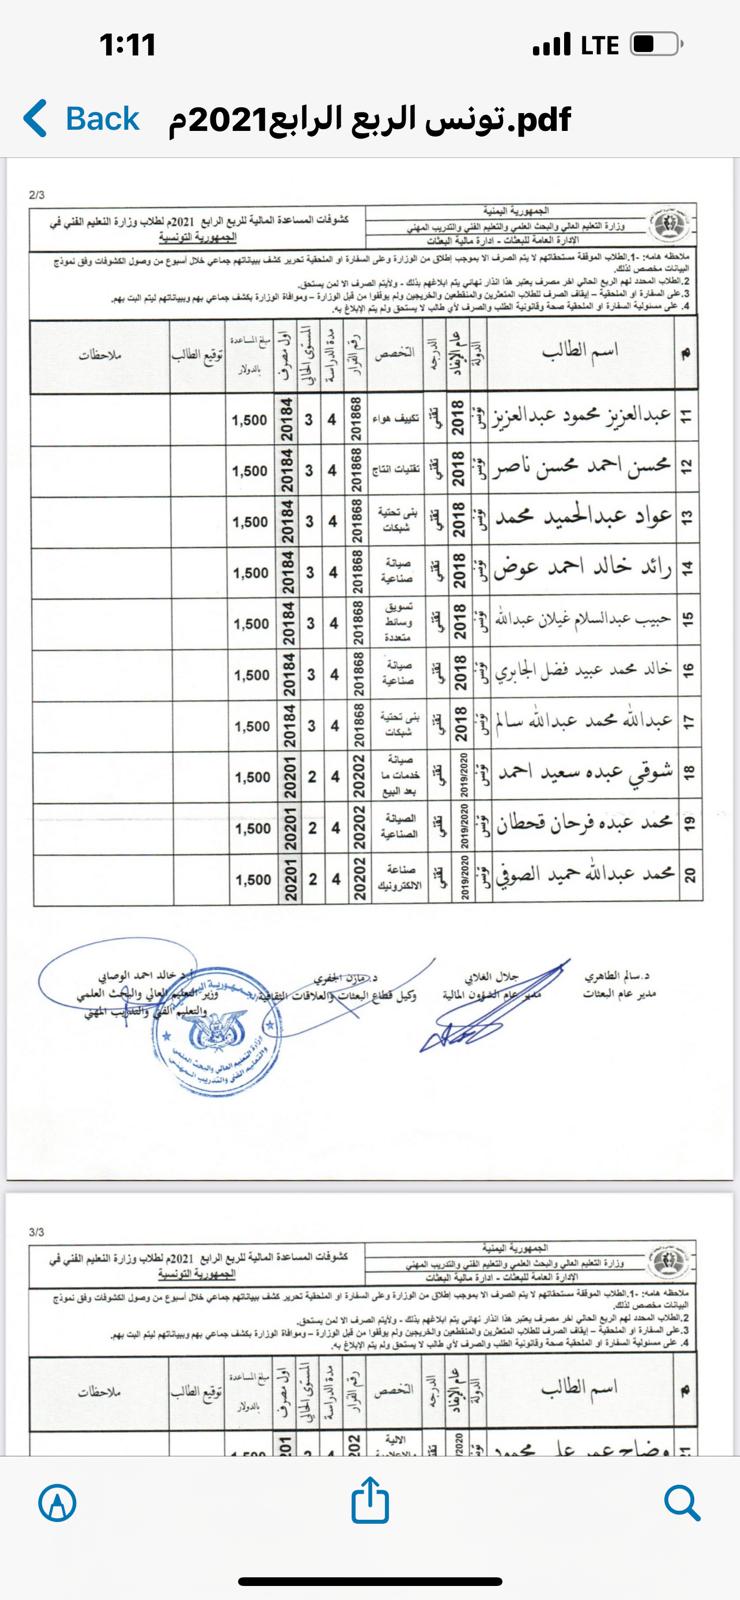 1:11
LTE
Back
تونس الربع الرابع2021م.pdf
2/3
الجمهورية اليمنية
وزارة التعليم العالي والبحث العلمي والتعليم الفني والتدريب المهني
الإدارة العامة للبعثات - ادارة مالية البعثات
كشوفات المساعدة المالية للربع الرابع 2021م لطلاب وزارة التعليم الفني في
الجمهورية التونسية
ملاحظه هامه: -1.الطلاب الموقفة مستحقاتهم لا يتم الصرف الا بموجب إطلاق من الوزارة وعلى السفارة او الملحقية تحرير كشف ببياناتهم جماعي خلال أسبوع من وصول الكشوفات وفق نموذج
البيانات مخصص لذلك.
2.الطلاب المحدد لهم الربع الحالي اخر مصرف يعتبر هذا انذار نهائي يتم ابلاغهم بذلك - ولايتم الصرف الا لمن يستحق.
3.على السفارة او الملحقية – إيقاف الصرف للطلاب المتعثرين والمنقطعين والخريجين ولم يوقفوا من قبل الوزارة – وموافاة الوزارة بكشف جماعي بهم وبيباناتهم ليتم البت بهم.
4. على مسئولية السفارة او الملحقية صحة وقانونية الطلب والصرف لأي طالب لا يستحق ولم يتم الإبلاغ به.
م اسم الطالب الدولة عام الإيفاد الدرجه التخصص رقم القرار مدة الدراسة المستوى الحالي اول مصرف مبلغ المساعدة بالدولار توقيع الطالب ملاحظات
11 عبدالعزيز محمود عبدالعزيز تونس 2018 تقني تكييف هواء 201868 4 3 20184 1,500
12 محسن احمد محسن ناصر تونس 2018 تقني تقنيات انتاج 201868 4 3 20184 1,500
13 عواد عبدالحميد محمد تونس 2018 تقني بنى تحتية شبكات 201868 4 3 20184 1,500
14 رائد خالد احمد عوض تونس 2018 تقني صيانة صناعية 201868 4 3 20184 1,500
15 حبيب عبدالسلام غيلان عبدالله تونس 2018 تقني تسويق وسائط متعددة 201868 4 3 20184 1,500
16 خالد محمد عبيد فضل الجابري تونس 2018 تقني صيانة صناعية 201868 4 3 20184 1,500
17 عبدالله محمد عبدالله سالم تونس 2018 تقني بنى تحتية شبكات 201868 4 3 20184 1,500
18 شوقي عبده سعيد احمد تونس 2019/2020 تقني صيانة خدمات ما بعد البيع 20202 4 2 20201 1,500
19 محمد عبده فرحان قحطان تونس 2019/2020 تقني الصيانة الصناعية 20202 4 2 20201 1,500
20 محمد عبدالله حميد الصوفي تونس 2019/2020 تقني صناعة الالكترونيك 20202 4 2 20201 1,500
د.سالم الطاهري
مدير عام البعثات
جلال الغلابي
مدير عام الشؤون المالية
د.مازن الجفري
وكيل قطاع البعثات والعلاقات الثقافية
أ.د خالد احمد الوصابي
وزير التعليم العالي والبحث العلمي
والتعليم الفني والتدريب المهني
وزارة التعليم العالي والبحث العلمي
والتعليم الفني والتدريب المهني
3/3
الجمهورية اليمنية
وزارة التعليم العالي والبحث العلمي والتعليم الفني والتدريب المهني
الإدارة العامة للبعثات - ادارة مالية البعثات
كشوفات المساعدة المالية للربع الرابع 2021م لطلاب وزارة التعليم الفني في
الجمهورية التونسية
ملاحظه هامه: -1.الطلاب الموقفة مستحقاتهم لا يتم الصرف الا بموجب إطلاق من الوزارة وعلى السفارة او الملحقية تحرير كشف ببياناتهم جماعي خلال أسبوع من وصول الكشوفات وفق نموذج
البيانات مخصص لذلك.
2.الطلاب المحدد لهم الربع الحالي اخر مصرف يعتبر هذا انذار نهائي يتم ابلاغهم بذلك - ولايتم الصرف الا لمن يستحق.
3.على السفارة او الملحقية – إيقاف الصرف للطلاب المتعثرين والمنقطعين والخريجين ولم يوقفوا من قبل الوزارة – وموافاة الوزارة بكشف جماعي بهم وبيباناتهم ليتم البت بهم.
4. على مسئولية السفارة او الملحقية صحة وقانونية الطلب والصرف لأي طالب لا يستحق ولم يتم الإبلاغ به.
م اسم الطالب الدولة عام الإيفاد الدرجه التخصص رقم القرار مدة الدراسة المستوى الحالي اول مصرف مبلغ المساعدة بالدولار توقيع الطالب ملاحظات
وضاح عمر علي محمود الالية